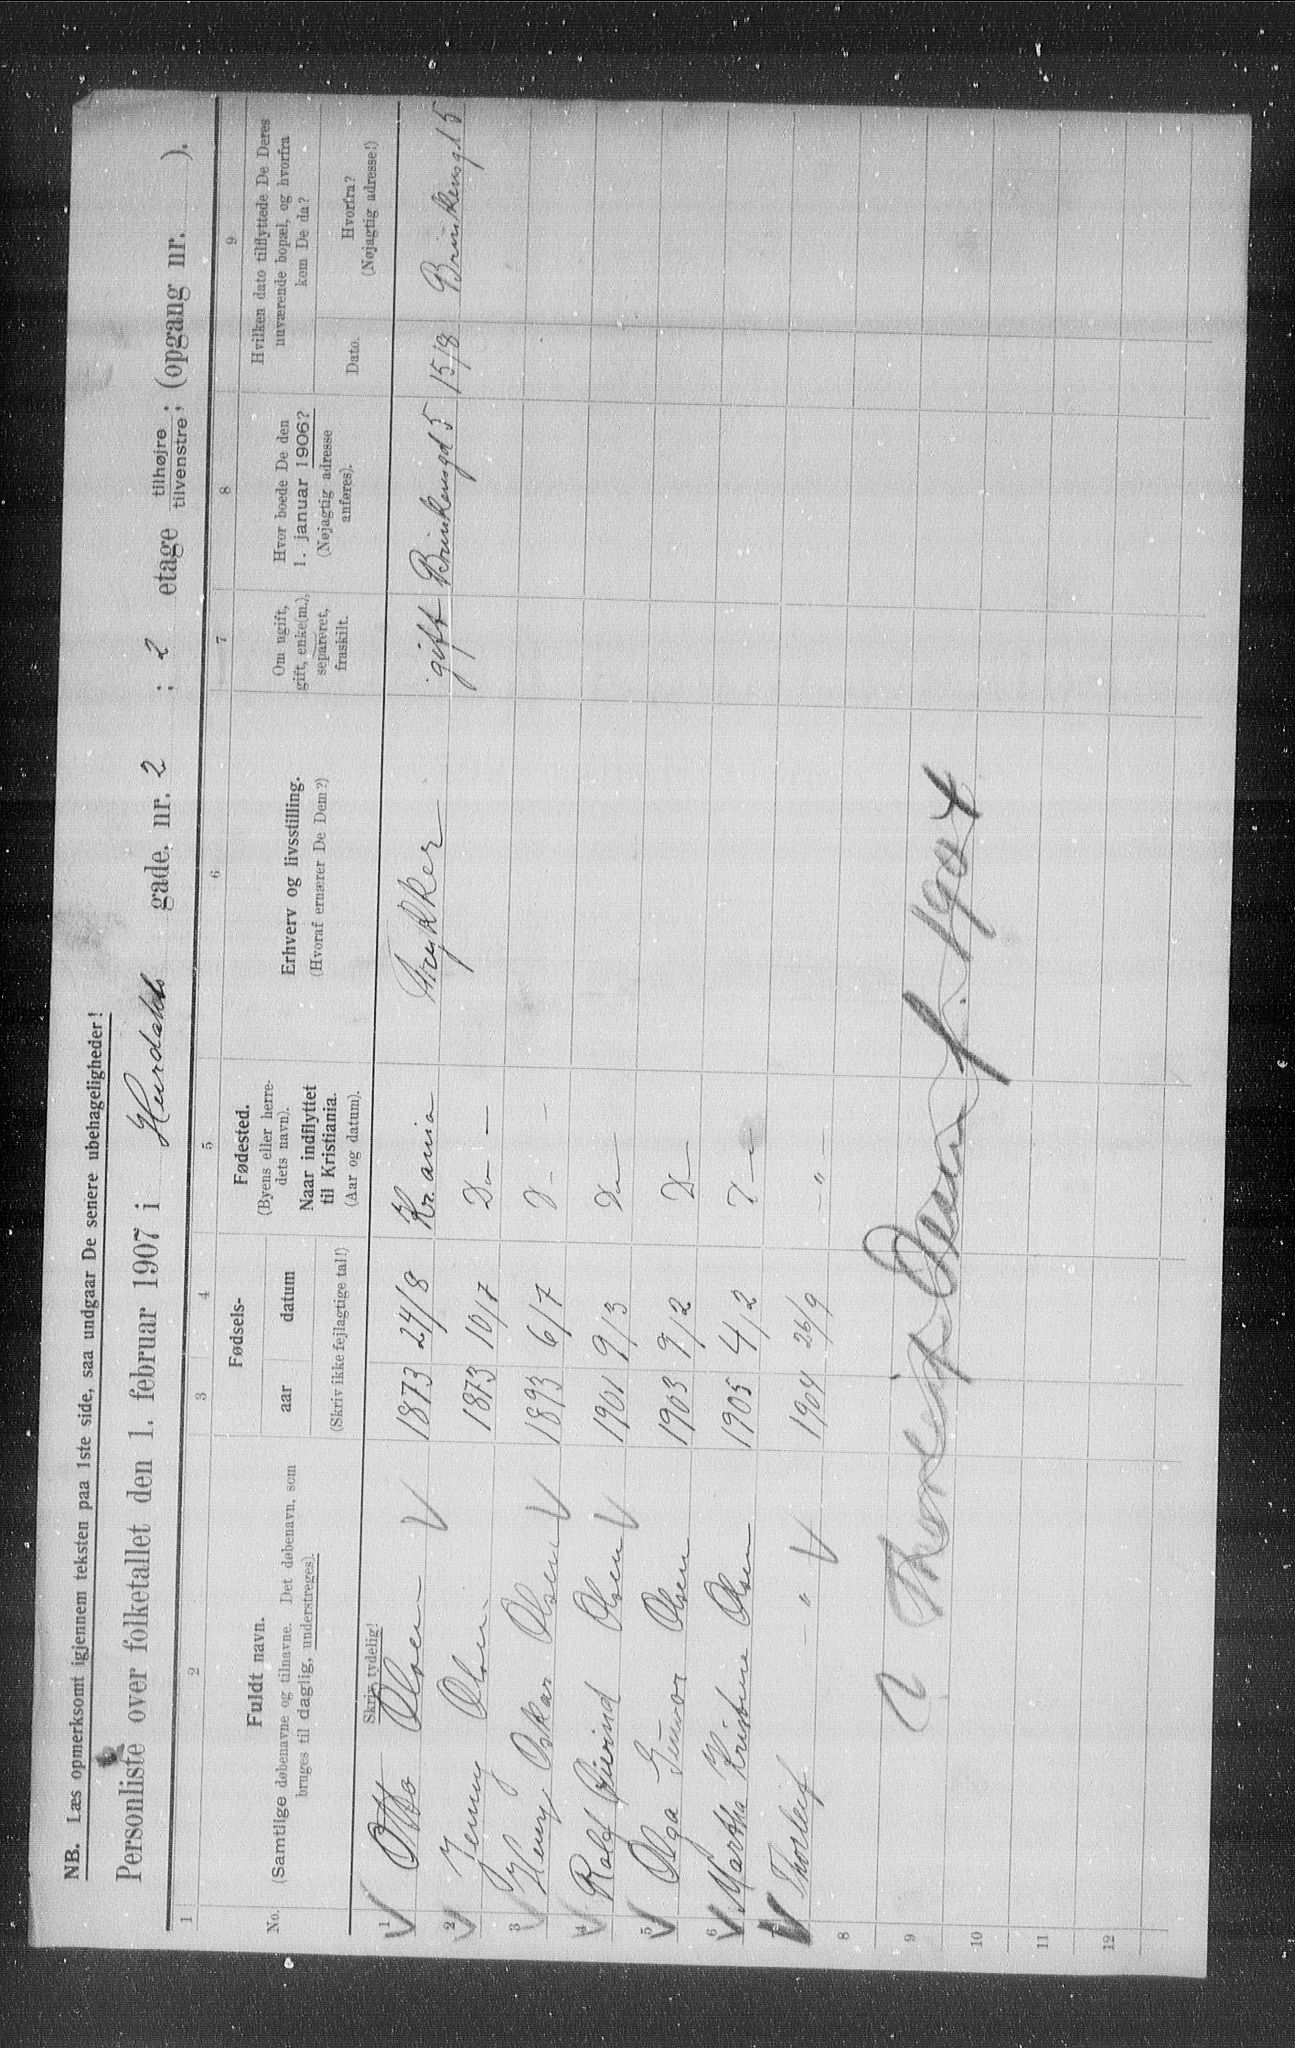 NB. Læs opmerksomt igjennem teksten paa 1ste side, saa undgaar De senere ubehageligheder!
Personliste over folketallet den 1. februar 1907 i Hurdals gade, nr. 2 ; 2 etage tilhøjre / tilvenstre, (opgang nr. ).
1 2 3 4 5 6 7 8 9
No. Fuldt navn. (Samtlige døbenavne og tilnavne. Det døbenavn, som bruges til daglig, understreges). Skriv tydelig!
Fødsels- aar datum (Skriv ikke fejlagtige tal!)
Fødested. (Byens eller herredets navn). Naar indflyttet til Kristiania. (Aar og datum).
Erhverv og livsstilling. (Hvoraf ernærer De Dem?)
Om ugift, gift, enke(m.), separeret, fraskilt.
Hvor boede De den 1. januar 1906? (Nøjagtig adresse anføres).
Hvilken dato tilflyttede De Deres nuværende bopæl, og hvorfra kom De da? Dato. Hvorfra? (Nøjagtig adresse!)
1 Otto Olsen 1873 24/8 Kr.ania gift Brinkensgd 5 15/8 Brinkensgd 5
2 Jenny Olsen 1873 10/7 Do —
3 Henry Oskar Olsen 1893 6/7 D —
4 Rolf Eivind Olsen 1901 9/3 Do
5 Olga Gunvor Olsen 1903 9/2 D —
6 Martha Kristine Olsen 1905 4/2 D —
7 Thorleif — " 1904 26/9 — " —
8
9 Thorleif Olsen f. 1904
10
11
12